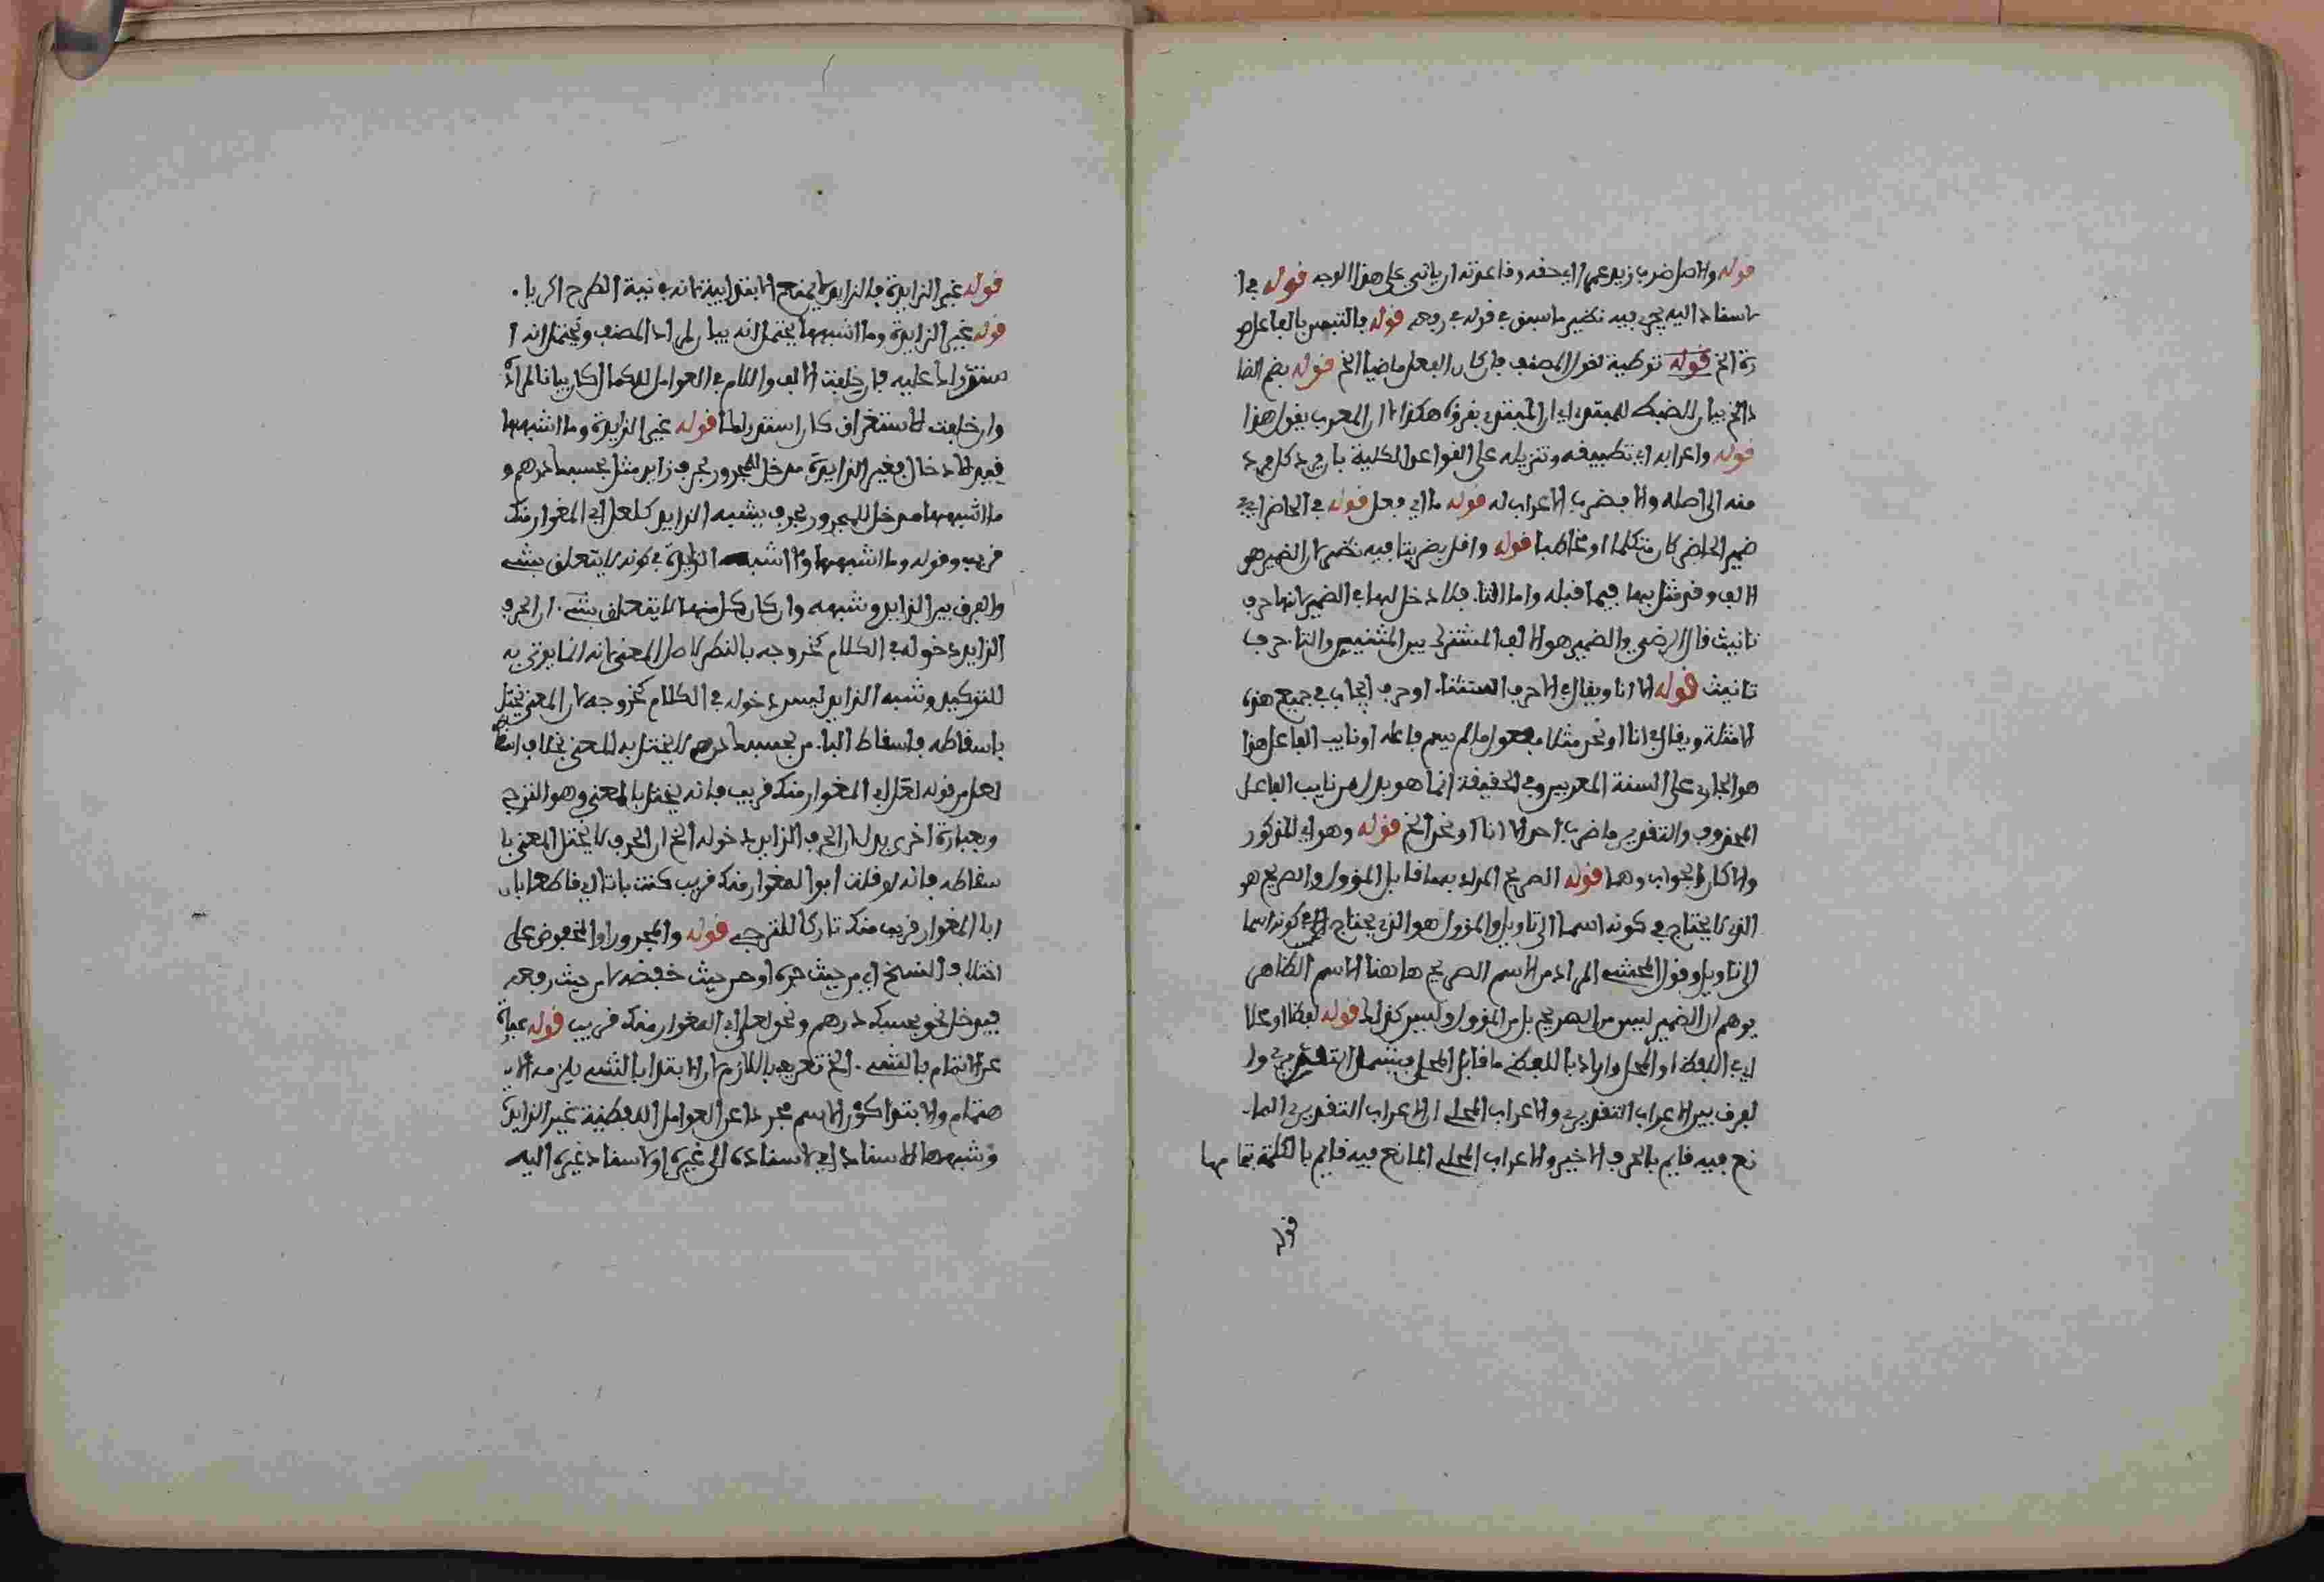 قوله والاصل ضرب زيد عمرا اي حقه وقاعدته ان ياتي على هذا الوجه قوله في ا
لاسناد اليه يجري فيه نظير ما سبق في قوله في رفعه قوله فالتبس بالفاعل صو
رة الخ قوله توطية لقول المصنف فان كان الفعل ماضيا الخ قوله بضم الضا
د الخ بيان للضبط للمبتدي اي ان المبتدي يقرؤه هكذا لا ان المعرب يقول هذا
قوله واعرابه اي تطبيقه وتنزيله على القواعد الكلية بان يرد كل فرد
منه الى اصله والا فضرب لا اعراب له قوله ما اي فعل قوله في الحاضر اي في
ضمير الحاضر كان متكلما او مخاطبا قوله وقل ضربتا فيه نظر لان الضمير هو
الالف وقد مثل بها فيما قبله واما التاء فلا دخل لها في الضمير لانها حرف
تانيث قال الرضي والضمير هو الالف المشترك بين المثنيين والتاء حرف
تانيث قوله الا انا ويقال في الا حرف استثناء او حرف ايجاب في جميع هذه
الامثلة ويقال في انا او نحن مثلا مفعول ما لم يسم فاعله او نايب الفاعل هذا
هو الجاري على السنة المعربين وفي الحقيقة انما هو بدل من نايب الفاعل
المحذوف والتقدير ما ضرب احد الا انا او نحن الخ قوله وهو اي المذكور
والا كان الجواب وهما قوله الصريح المراد به ما قابل المؤول والصريح هو
الذي لا يحتاج في كونه اسما الى تاويل والمؤول هو الذي يحتاج في كونه اسما
الى تاويل وقول المحشي المراد من الاسم الصريح هاهنا الاسم الظاهر
يوهم ان الضمير ليس من الصريح بل من المؤول وليس كذلك قوله لفظا او محلا
اي في اللفظ او المحل واراد باللفظي ما قابل المحلي فيشمل التقديري وا
لفرق بين الاعراب التقديري والاعراب المحلي ان الاعراب التقديري الما
نع فيه قايم بالحرف الاخير والاعراب المحلي المانع فيه قايم بالكلمة بتمامها
قوله
قوله غير الزايدة فالزايد لا يمنع الابتدايية لانه في نية الطرح اكريا.
قوله غير الزايدة وما اشبهها يحتمل انه بيان لمراد المصنف ويحتمل انه ا
ستدراك عليه فان جعلت الالف واللام في العوامل للكمال كان بيانا لمراده
وان جعلت للاستغراق كان استدراكا قوله غير الزايدة وما اشبهها
قيد لادخال فغير الزايدة مدخل للمجرور بحرف زايد مثل بحسبك درهم و
ما اشبهها مدخل للمجرور بحرف يشبه الزايد كلعل ابي المغوار منك
قريب وقوله وما اشبهها اي ما اشبه الزايدة في كونه لا يتعلق بشيء
والفرق بين الزايد وشبهه وان كان كل منهما لا يتعلق بشيء. ان الحرف
الزايد دخوله في الكلام كخروجه بالنظر لاصل المعنى لانه انما يوتى به
للتوكيد وشبه الزايد ليس دخوله في الكلام كخروجه لان المعنى يختل
باسقاطه فاسقاط الباء من بحسبك درهم لا يختل به المعنى بخلاف اسقاط
لعل من قوله لعل ابي المغوار منك قريب فانه يختل المعنى وهو الترجي
وبعبارة اخرى بدل ان الحرف الزايد دخوله الخ ان الحرف لا يختل المعنى با
سقاطه فانه لو قلت ابو المغوار منك قريب كنت باتا اي قاطعا بان
ابا المغوار قريب منك تاركا للترجي قوله والمجرور او المخفوض على
اختلاف النسخ اي من حيث جره او من حيث خفضه لا من حيث رفعه
فيدخل نحو بحسبك درهم ونحو لعل ابي المغوار منك قريب قوله عبارة
عن الاهتمام بالشيء. الخ تعريف باللازم لان الابتداء بالشيء يلزمه الا
هتمام والابتداء كون الاسم مجردا عن العوامل اللفظية غير الزايدة
وشبهها للاسناد اي لاسناده الى غيره او لاسناد غيره اليه